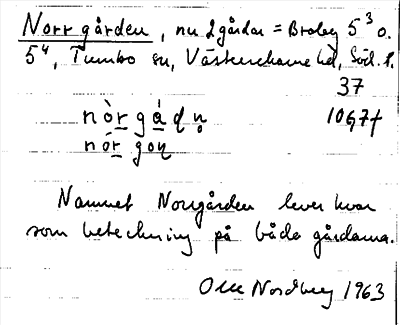 Norrgården, nu 2 gårdar = Broby 5³ o.
5⁴, Tumbo sn, Västerrekarne hd, Söd. l.
37
nòrgådn
nórgon
Namnet Norrgården lever kvar
som beteckning på båda gårdarna.
Olle Nordberg 1963